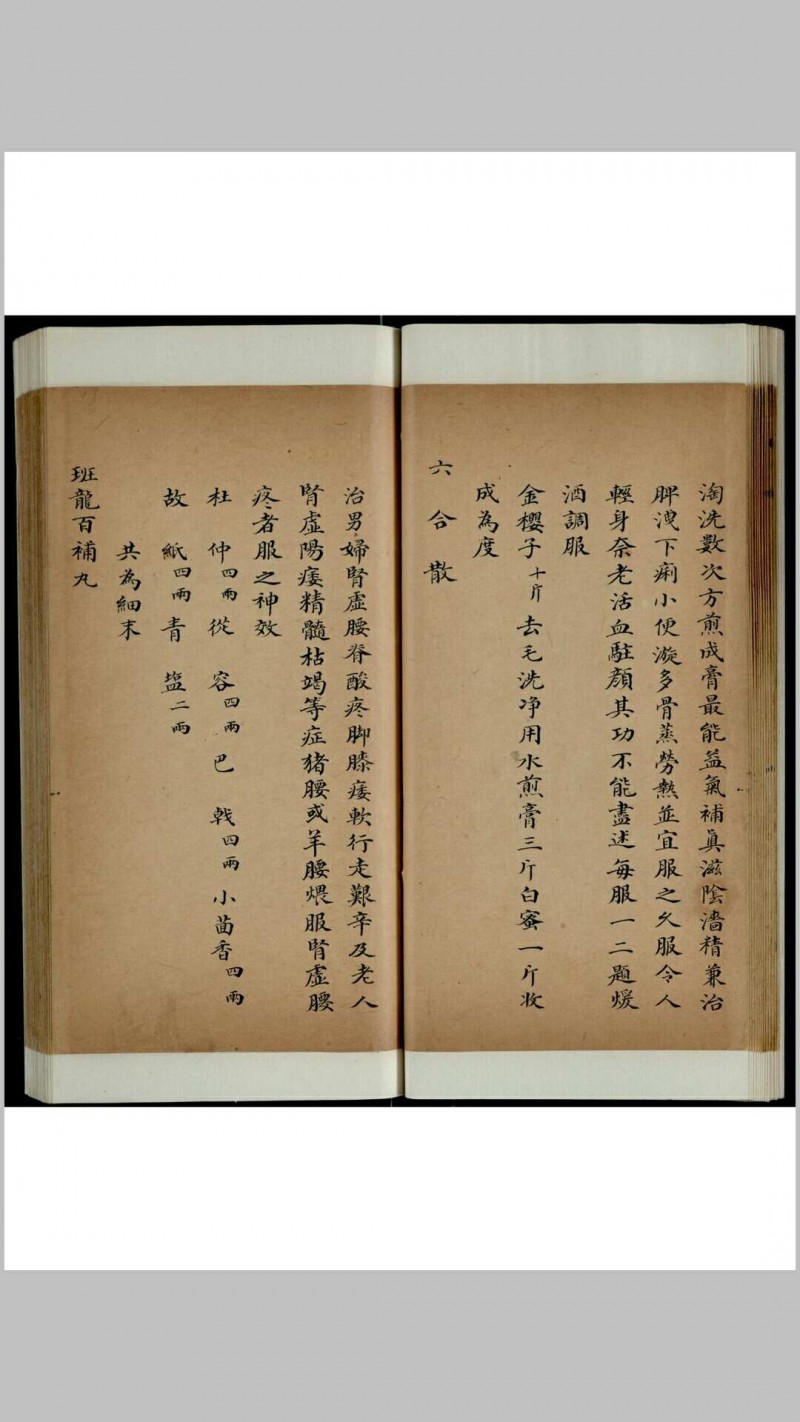 淘洗數次方煎成膏最能益氣補真滋陰濇精兼治
脾洩下痢小便漩多骨蒸勞熱並宜服之久服令人
輕身奈老活血駐顏其功不能盡述每服一二題煖
酒調服
金櫻子十斤去毛洗净用水煎膏三斤白蜜一斤收
成為度
六合散
治男婦腎虛腰脊酸疼脚膝痿軟行走艱辛及老人
腎虛陽痿精髓枯竭等症猪腰或羊腰煨服腎虛腰
疼者服之神效
杜仲四兩從容四兩巴戟四兩小茴香四兩
故紙四兩青盬二兩
共為細末
班龍百補丸